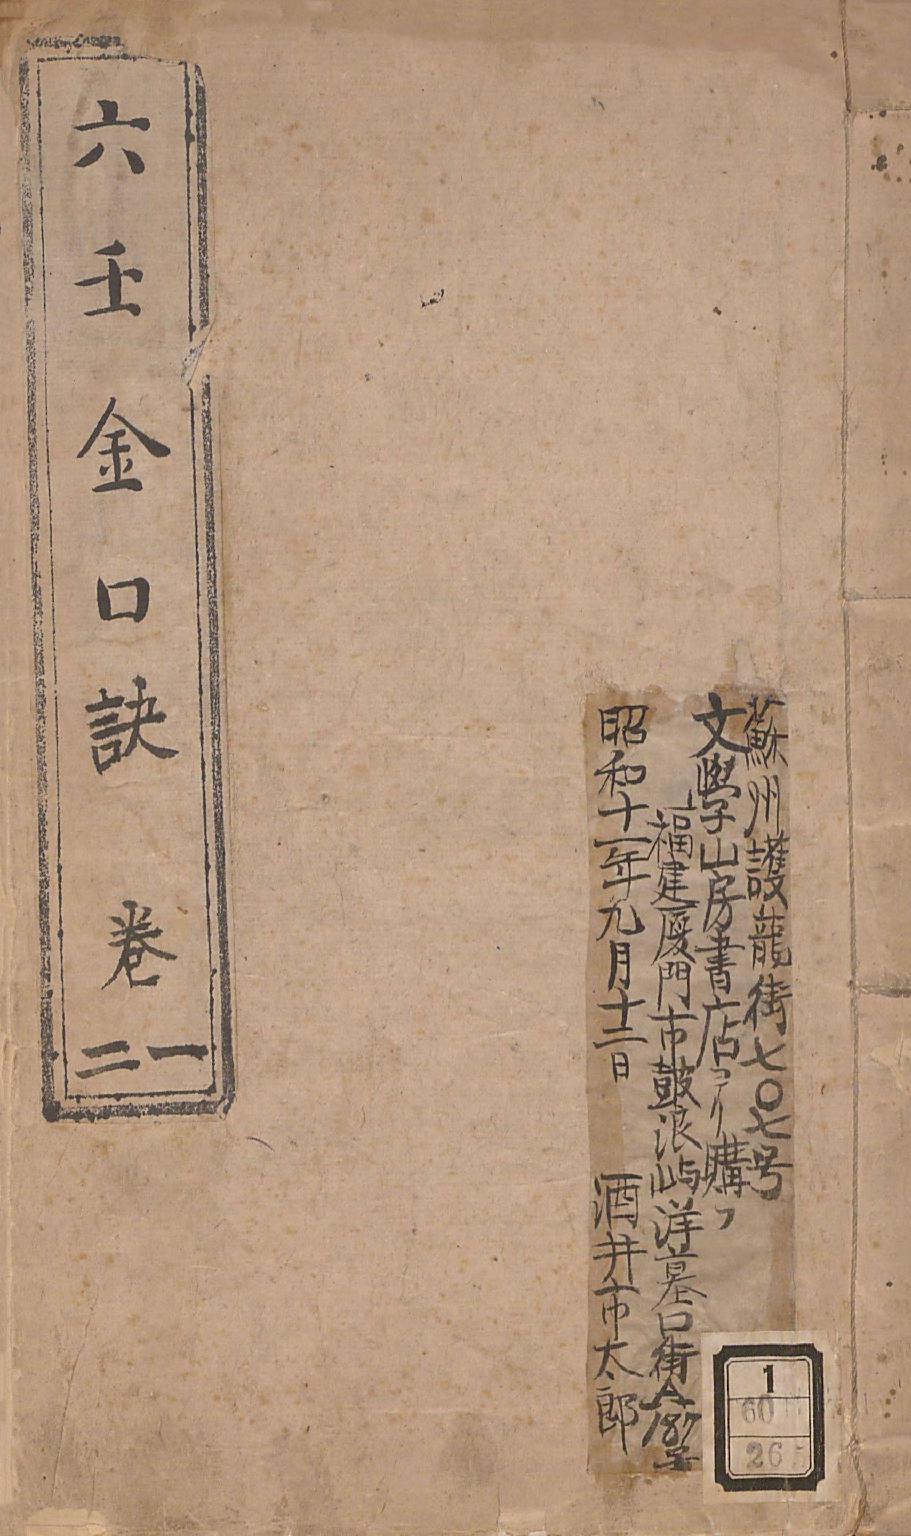 蘇州護龍街七〇七号
文學山房書店ヨリ購フ
福建厦門市鼓浪屿洋墓口街A187号
昭和十一年九月十二日 酒井市太郎
六壬金口訣 卷一二
1
60
265